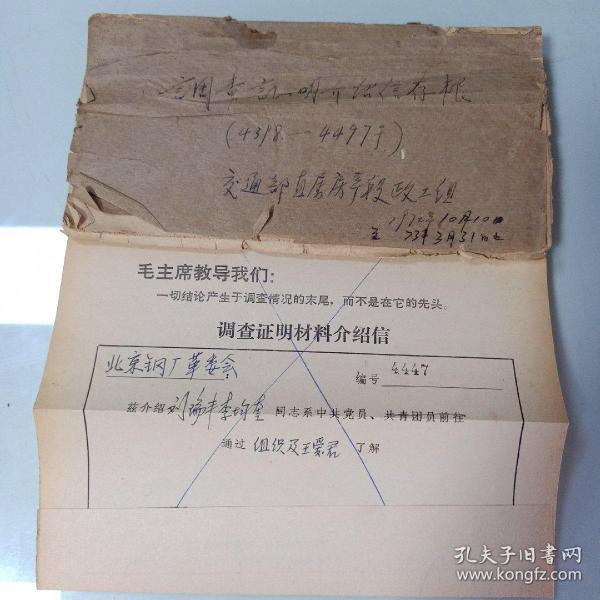 调查证明介绍信存根
(4398—4497号)
交通部直属房产段政工组
1972年10月10日
至 73年3月31日止
毛主席教导我们：
一切结论产生于调查情况的末尾，而不是在它的先头。
调查证明材料介绍信
北京钢厂革委会
编号 4447
兹介绍 同志系中共党员、共青团员前往
通过 组织及王 君 了解
孔夫子旧书网
www.kongfz.com